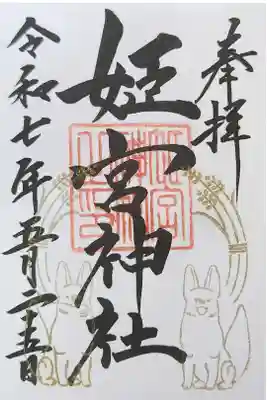 奉拝
姫宮神社
令和七年五月二十五日